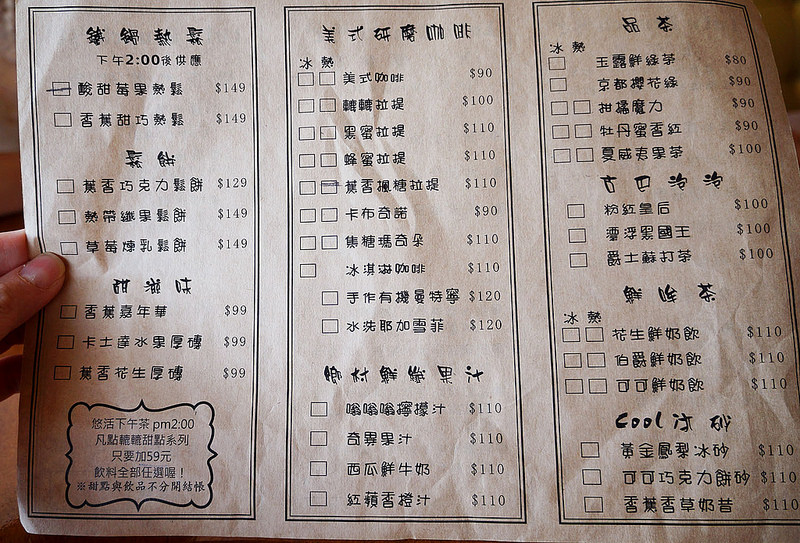 鐵鍋熱鬆
下午2:00後供應
酸甜莓果熱鬆 $149
香蕉甜巧熱鬆 $149
鬆餅
蕉香巧克力鬆餅 $129
熱帶纖果鬆餅 $149
草莓煉乳鬆餅 $149
甜滋味
香蕉嘉年華 $99
卡士達水果厚磚 $99
蕉香花生厚磚 $99
悠活下午茶 pm2:00
凡點轆轆甜點系列
只要加59元
飲料全部任選喔！
※甜點與飲品不分開結帳
美式研磨咖啡
冰 熱
美式咖啡 $90
轆轆拉提 $100
黑蜜拉提 $110
蜂蜜拉提 $110
蕉香楓糖拉提 $110
卡布奇諾 $90
焦糖瑪奇朵 $110
冰淇淋咖啡 $110
手作有機曼特寧 $120
水洗耶加雪菲 $120
鄉村鮮纖果汁
嗡嗡嗡檸檬汁 $110
奇異果汁 $110
西瓜鮮牛奶 $110
紅蘋香橙汁 $110
品茶
冰 熱
玉露鮮綠茶 $80
京都櫻花綠 $90
柑橘魔力 $90
牡丹蜜香紅 $90
夏威夷果茶 $100
古早泡泡
粉紅皇后 $100
漂浮黑國王 $100
爵士蘇打茶 $100
鮮哞茶
冰 熱
花生鮮奶飲 $110
伯爵鮮奶飲 $110
可可鮮奶飲 $110
Cool冰砂
黃金鳳梨冰砂 $110
可可巧克力餅砂 $110
香蕉香草奶昔 $110